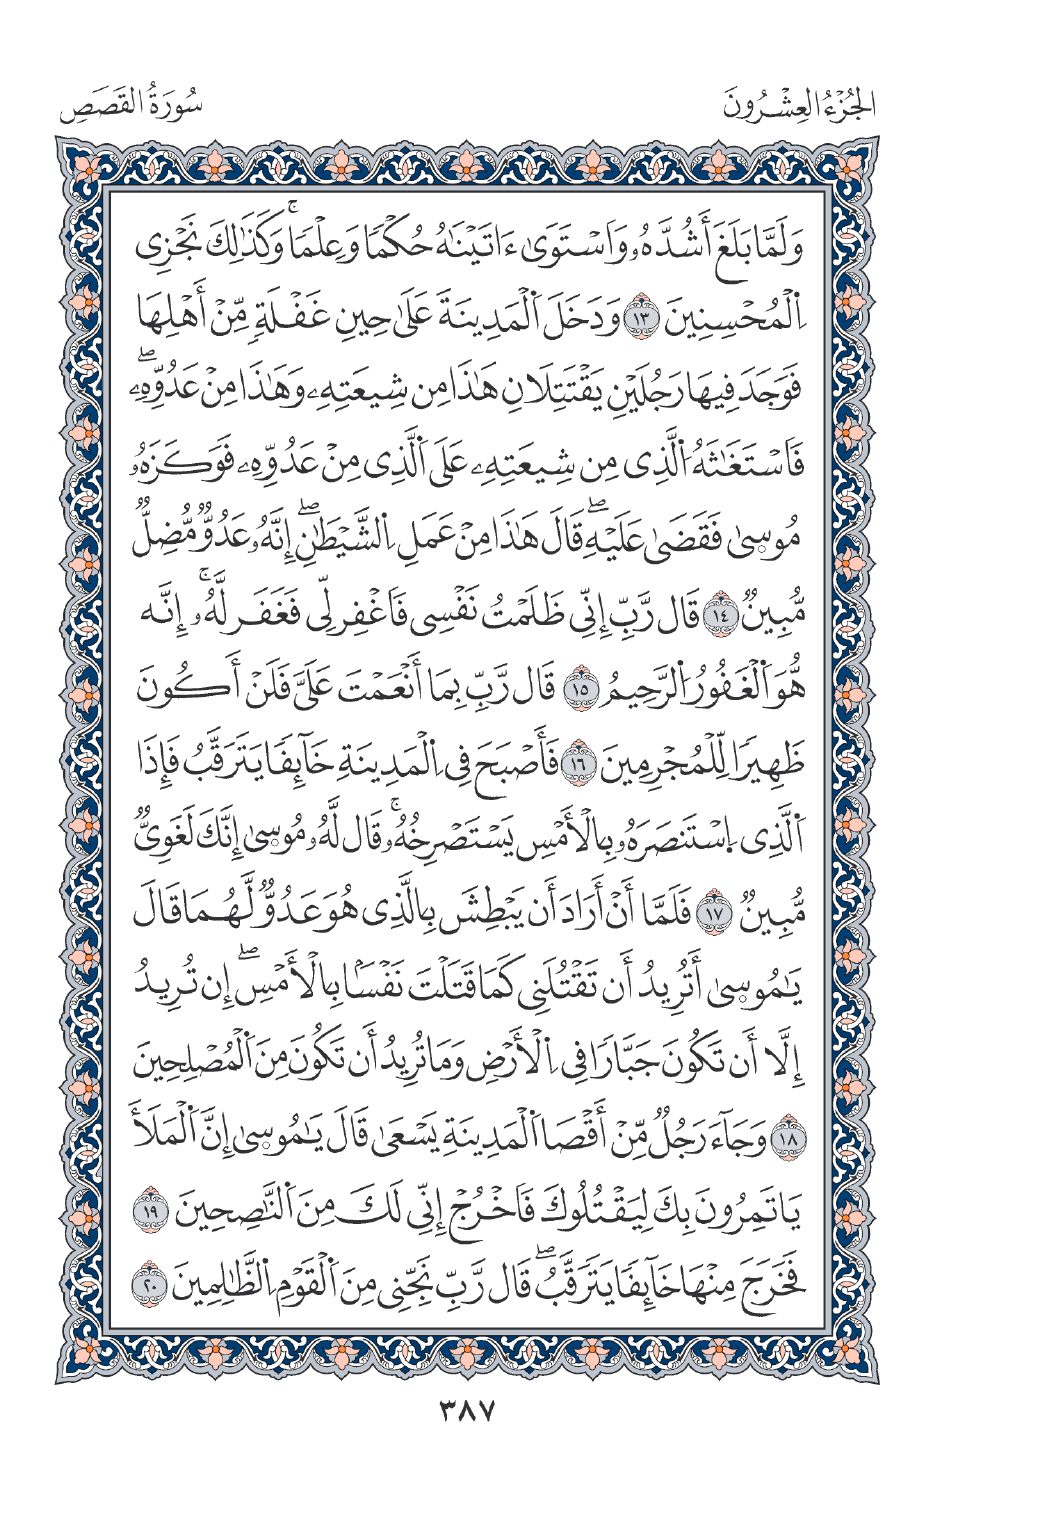 الجُزْءُ العِشْرُونَ
سُورَةُ القَصَصِ
وَلَمَّا بَلَغَ أَشُدَّهُۥ وَٱسْتَوَىٰ ءَاتَيْنَٰهُ حُكْمًا وَعِلْمًاۚ وَكَذَٰلِكَ نَجْزِى
اِ۬لْمُحْسِنِينَ ١٣ وَدَخَلَ اَ۬لْمَدِينَةَ عَلَىٰ حِينِ غَفْلَةٍ مِّنْ أَهْلِهَا
فَوَجَدَ فِيهَا رَجُلَيْنِ يَقْتَتِلَانِ هَٰذَا مِن شِيعَتِهِۦ وَهَٰذَا مِنْ عَدُوِّهِۦۖ
فَاَسْتَغَٰثَهُ اُ۬لَّذِى مِن شِيعَتِهِۦ عَلَى اَ۬لَّذِى مِنْ عَدُوِّهِۦ فَوَكَزَهُۥ
مُوسۭىٰ فَقَضَىٰ عَلَيْهِۖ قَالَ هَٰذَا مِنْ عَمَلِ اِ۬لشَّيْطَٰنِۖ إِنَّهُۥ عَدُوٌّ مُّضِلٌّ
مُّبِينٌ ١٤ قَال رَّبِّ إِنِّى ظَلَمْتُ نَفْسِى فَاَغْفِر لِّى فَغَفَر لَّهُۥۚ إِنَّه
هُّوَ اَ۬لْغَفُورُ اُ۬لرَّحِيمُ ١٥ قَال رَّبِّ بِمَا أَنْعَمْتَ عَلَىَّ فَلَنْ أَكُونَ
ظَهِيرًا لِّلْمُجْرِمِينَ ١٦ فَأَصْبَحَ فِى اِ۬لْمَدِينَةِ خَآئِفًا يَتَرَقَّبُ فَإِذَا
اَ۬لَّذِى اِ۪سْتَنصَرَهُۥ بِالْأَمْسِ يَسْتَصْرِخُهُۥۚ قَال لَّهُۥ مُوسۭىٰ إِنَّكَ لَغَوِىٌّ
مُّبِينٌ ١٧ فَلَمَّا أَنْ أَرَادَ أَن يَبْطِشَ بِالَّذِى هُوَ عَدُوٌّ لَّهُمَا قَالَ
يَٰمُوسۭىٰ أَتُرِيدُ أَن تَقْتُلَنِى كَمَا قَتَلْتَ نَفْسَۢا بِالْأَمْسِۖ إِن تُرِيدُ
إِلَّا أَن تَكُونَ جَبَّارًا فِى اِ۬لْأَرْضِ وَمَا تُرِيدُ أَن تَكُونَ مِنَ اَ۬لْمُصْلِحِينَ
١٨ وَجَآءَ رَجُلٌ مِّنْ أَقْصَا اَ۬لْمَدِينَةِ يَسْعَىٰ قَالَ يَٰمُوسۭىٰ إِنَّ اَ۬لْمَلَأَ
يَاتَمِرُونَ بِكَ لِيَقْتُلُوكَ فَاَخْرُجْ إِنِّى لَكَ مِنَ اَ۬لنَّٰصِحِينَ ١٩
فَخَرَجَ مِنْهَا خَآئِفًا يَتَرَقَّبُۖ قَال رَّبِّ نَجِّنِى مِنَ اَ۬لْقَوْمِ اِ۬لظَّٰلِمِينَ ٢٠
٣٨٧